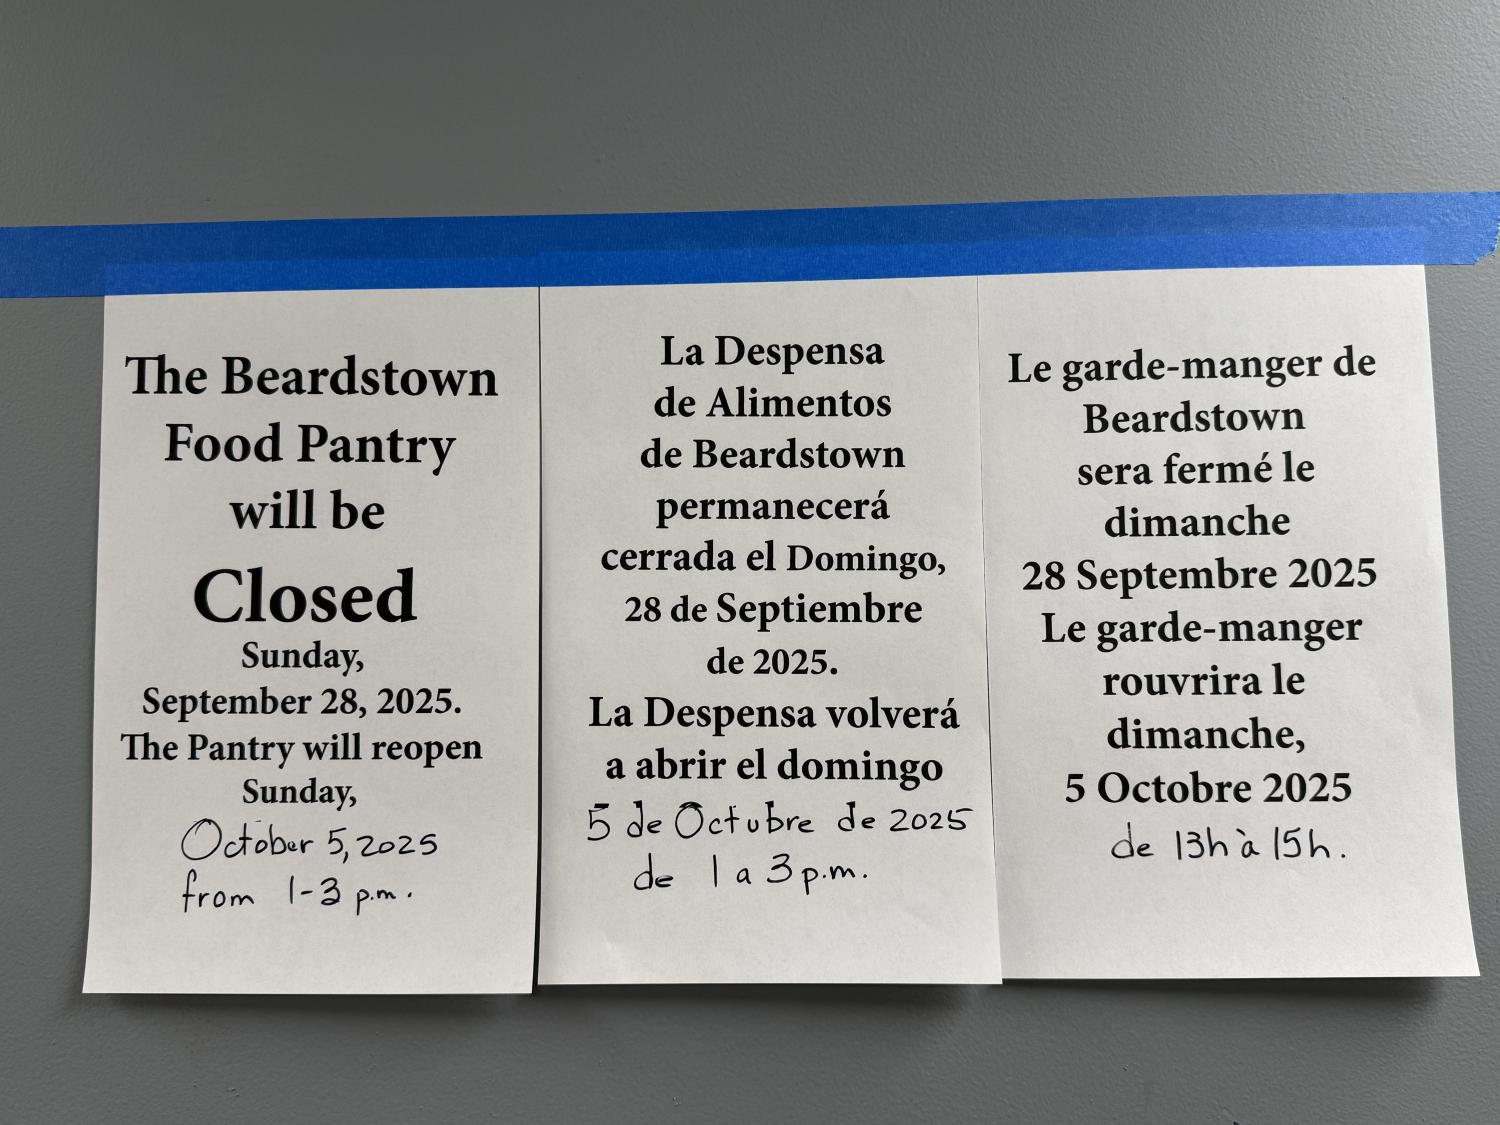 The Beardstown
Food Pantry
will be
Closed
Sunday,
September 28, 2025.
The Pantry will reopen
Sunday,
October 5, 2025
from 1-3 p.m.
La Despensa
de Alimentos
de Beardstown
permanecerá
cerrada el Domingo,
28 de Septiembre
de 2025.
La Despensa volverá
a abrir el domingo
5 de Octubre de 2025
de 1 a 3 p.m.
Le garde-manger de
Beardstown
sera fermé le
dimanche
28 Septembre 2025
Le garde-manger
rouvrira le
dimanche,
5 Octobre 2025
de 13h à 15h.